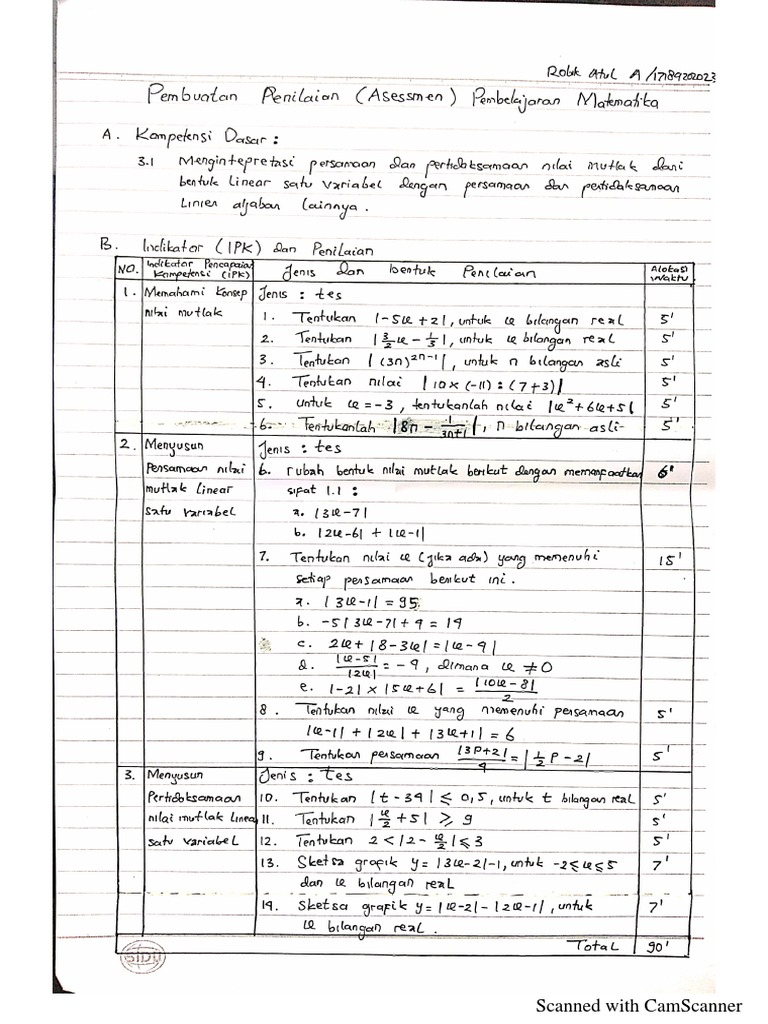 Robik Atul A /17189202023
Pembuatan Penilaian (Asessmen) Pembelajaran Matematika
A. Kompetensi Dasar :
3.1 Mengintepretasi persamaan dan pertidaksamaan nilai mutlak dari
bentuk linear satu variabel dengan persamaan dan pertidaksamaan
Linier aljabar lainnya.
B. Indikator (IPK) dan Penilaian
NO. Indikator Pencapaian Kompetensi (IPK) Jenis dan bentuk Penilaian Alokasi Waktu
1. Memahami Konsep Jenis : tes
nilai mutlak 1. Tentukan |-5x+2|, untuk x bilangan real 5'
2. Tentukan |3/2 x - 1/5|, untuk x bilangan real 5'
3. Tentukan |(3n)^2n-1|, untuk n bilangan asli 5'
4. Tentukan nilai |10×(-11):(7+3)| 5'
5. Untuk x = -3, tentukanlah nilai |x²+6x+5| 5'
6. Tentukanlah |8n - 1/3n+1|, n bilangan asli 5'
2. Menyusun Jenis : tes
Persamaan nilai 6. rubah bentuk nilai mutlak berikut dengan memanfaatkan 6'
mutlak Linear sifat 1.1 :
satu variabel a. |3x-7|
b. |2x-6| + |x-1|
7. Tentukan nilai x (jika ada) yang memenuhi 15'
setiap persamaan berikut ini.
a. |3x-1| = 95
b. -5|3x-7| + 4 = 14
c. 2x + |8-3x| = |x-4|
d. |x-5|/|2x| = -4, dimana x ≠ 0
e. |-2| × |5x+6| = |10x-8|/2
8. Tentukan nilai x yang memenuhi persamaan 5'
|x-1| + |2x| + |3x+1| = 6
9. Tentukan persamaan |3P+2|/4 = |1/2 P - 2| 5'
3. Menyusun Jenis : tes
Pertidaksamaan 10. Tentukan |t-34| ≤ 0,5, untuk t bilangan real 5'
nilai mutlak linear 11. Tentukan |x/2 + 5| ≥ 9 5'
satu variabel 12. Tentukan 2 < |2 - x/2| ≤ 3 5'
13. Sketsa grafik y = |3x-2|-1, untuk -2 ≤ x ≤ 5 7'
dan x bilangan real
14. Sketsa grafik y = |x-2| - |2x-1|, untuk 7'
x bilangan real.
Total 90'
SIDU
Scanned with CamScanner